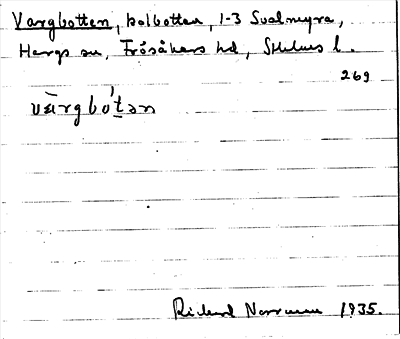 Vargbotten, kolbotten, 1-3 Svalmyra,
Hargs sn, Frösåkers hd, Sthlms l.
269
vàrgbót̲ən
Rickard Norrman 1935.